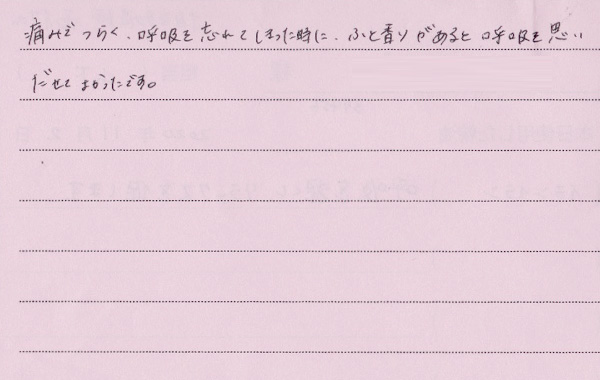 痛みでつらく、呼吸を忘れてしまった時に、ふと香りがあると呼吸を思い
だせてよかったです。